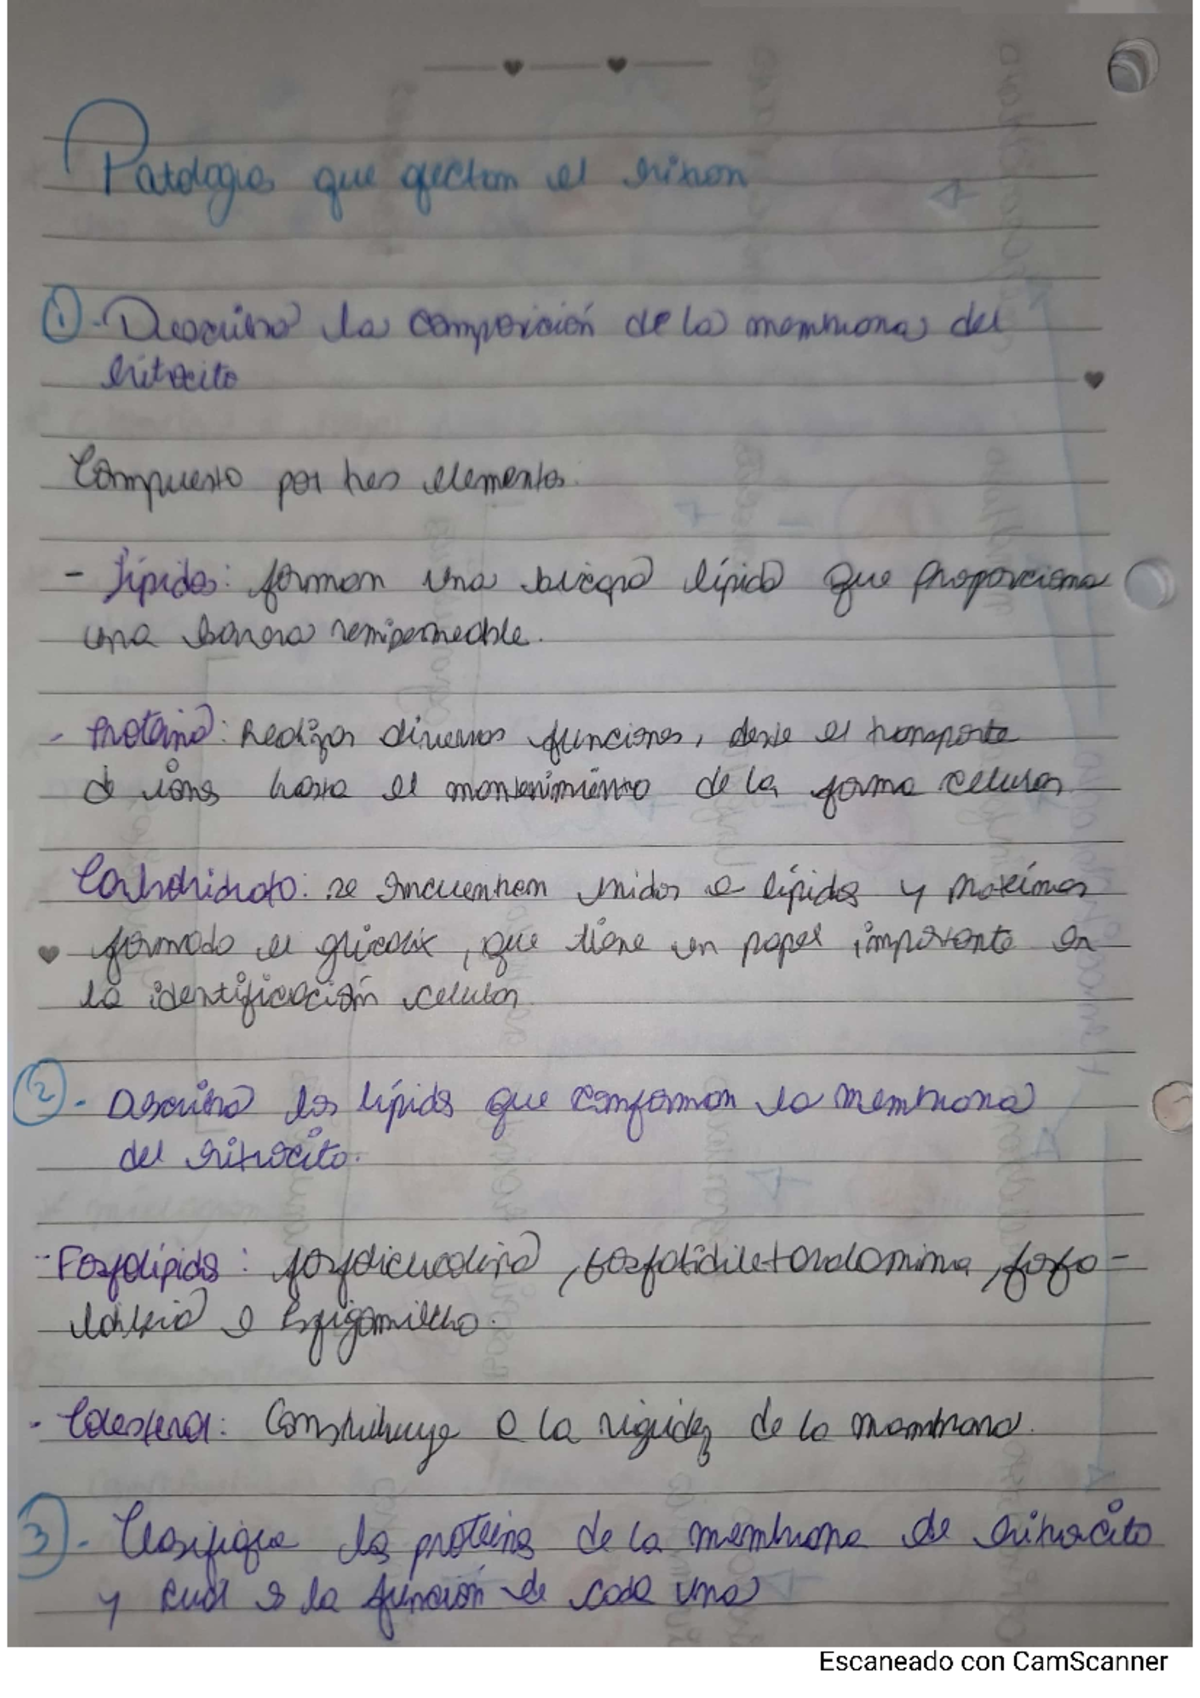 Patologias que afectan el riñon
①- Describa la composición de la membrana del
eritrocito
Compuesto por tres elementos.
- Lípidos: forman una bicapa lípida que proporciona
una barrera semipermeable.
- Proteina: Realizan diversas funciones, desde el transporte
de iones hasta el mantenimiento de la forma celular
Carbohidrato: se encuentran unidos a lípidos y proteínas
formado el glicocalix, que tiene un papel importante en
la identificación celular
②- Describa los lípidos que conforman la membrana
del eritrocito.
- Fosfolípidos: , fosfo-
e
- Colesterol: Constribuye a la rigidez de la membrana.
③- Clasifique las proteínas de la membrana de eritrocito
y cual es la función de cada una
Escaneado con CamScanner